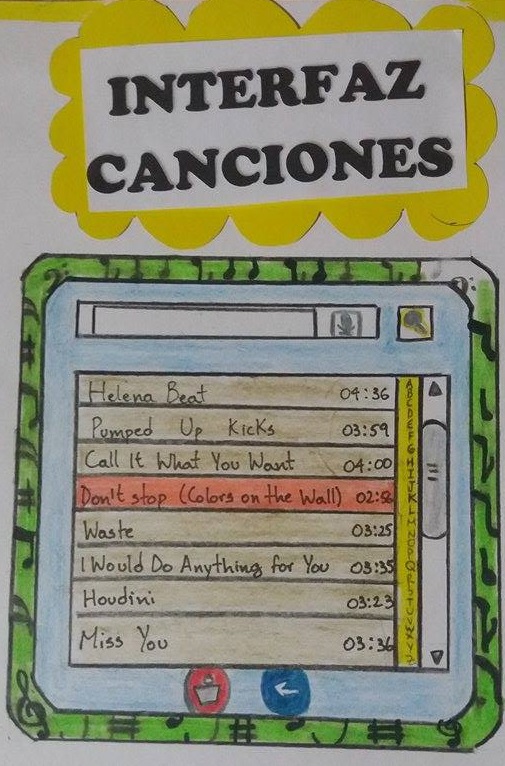 INTERFAZ
CANCIONES
Helena Beat 04:36
Pumped Up Kicks 03:59
Call It What You Want 04:00
Don't stop (Colors on the Wall) 02:56
Waste 03:25
I Would Do Anything for You 03:35
Houdini 03:23
Miss You 03:36